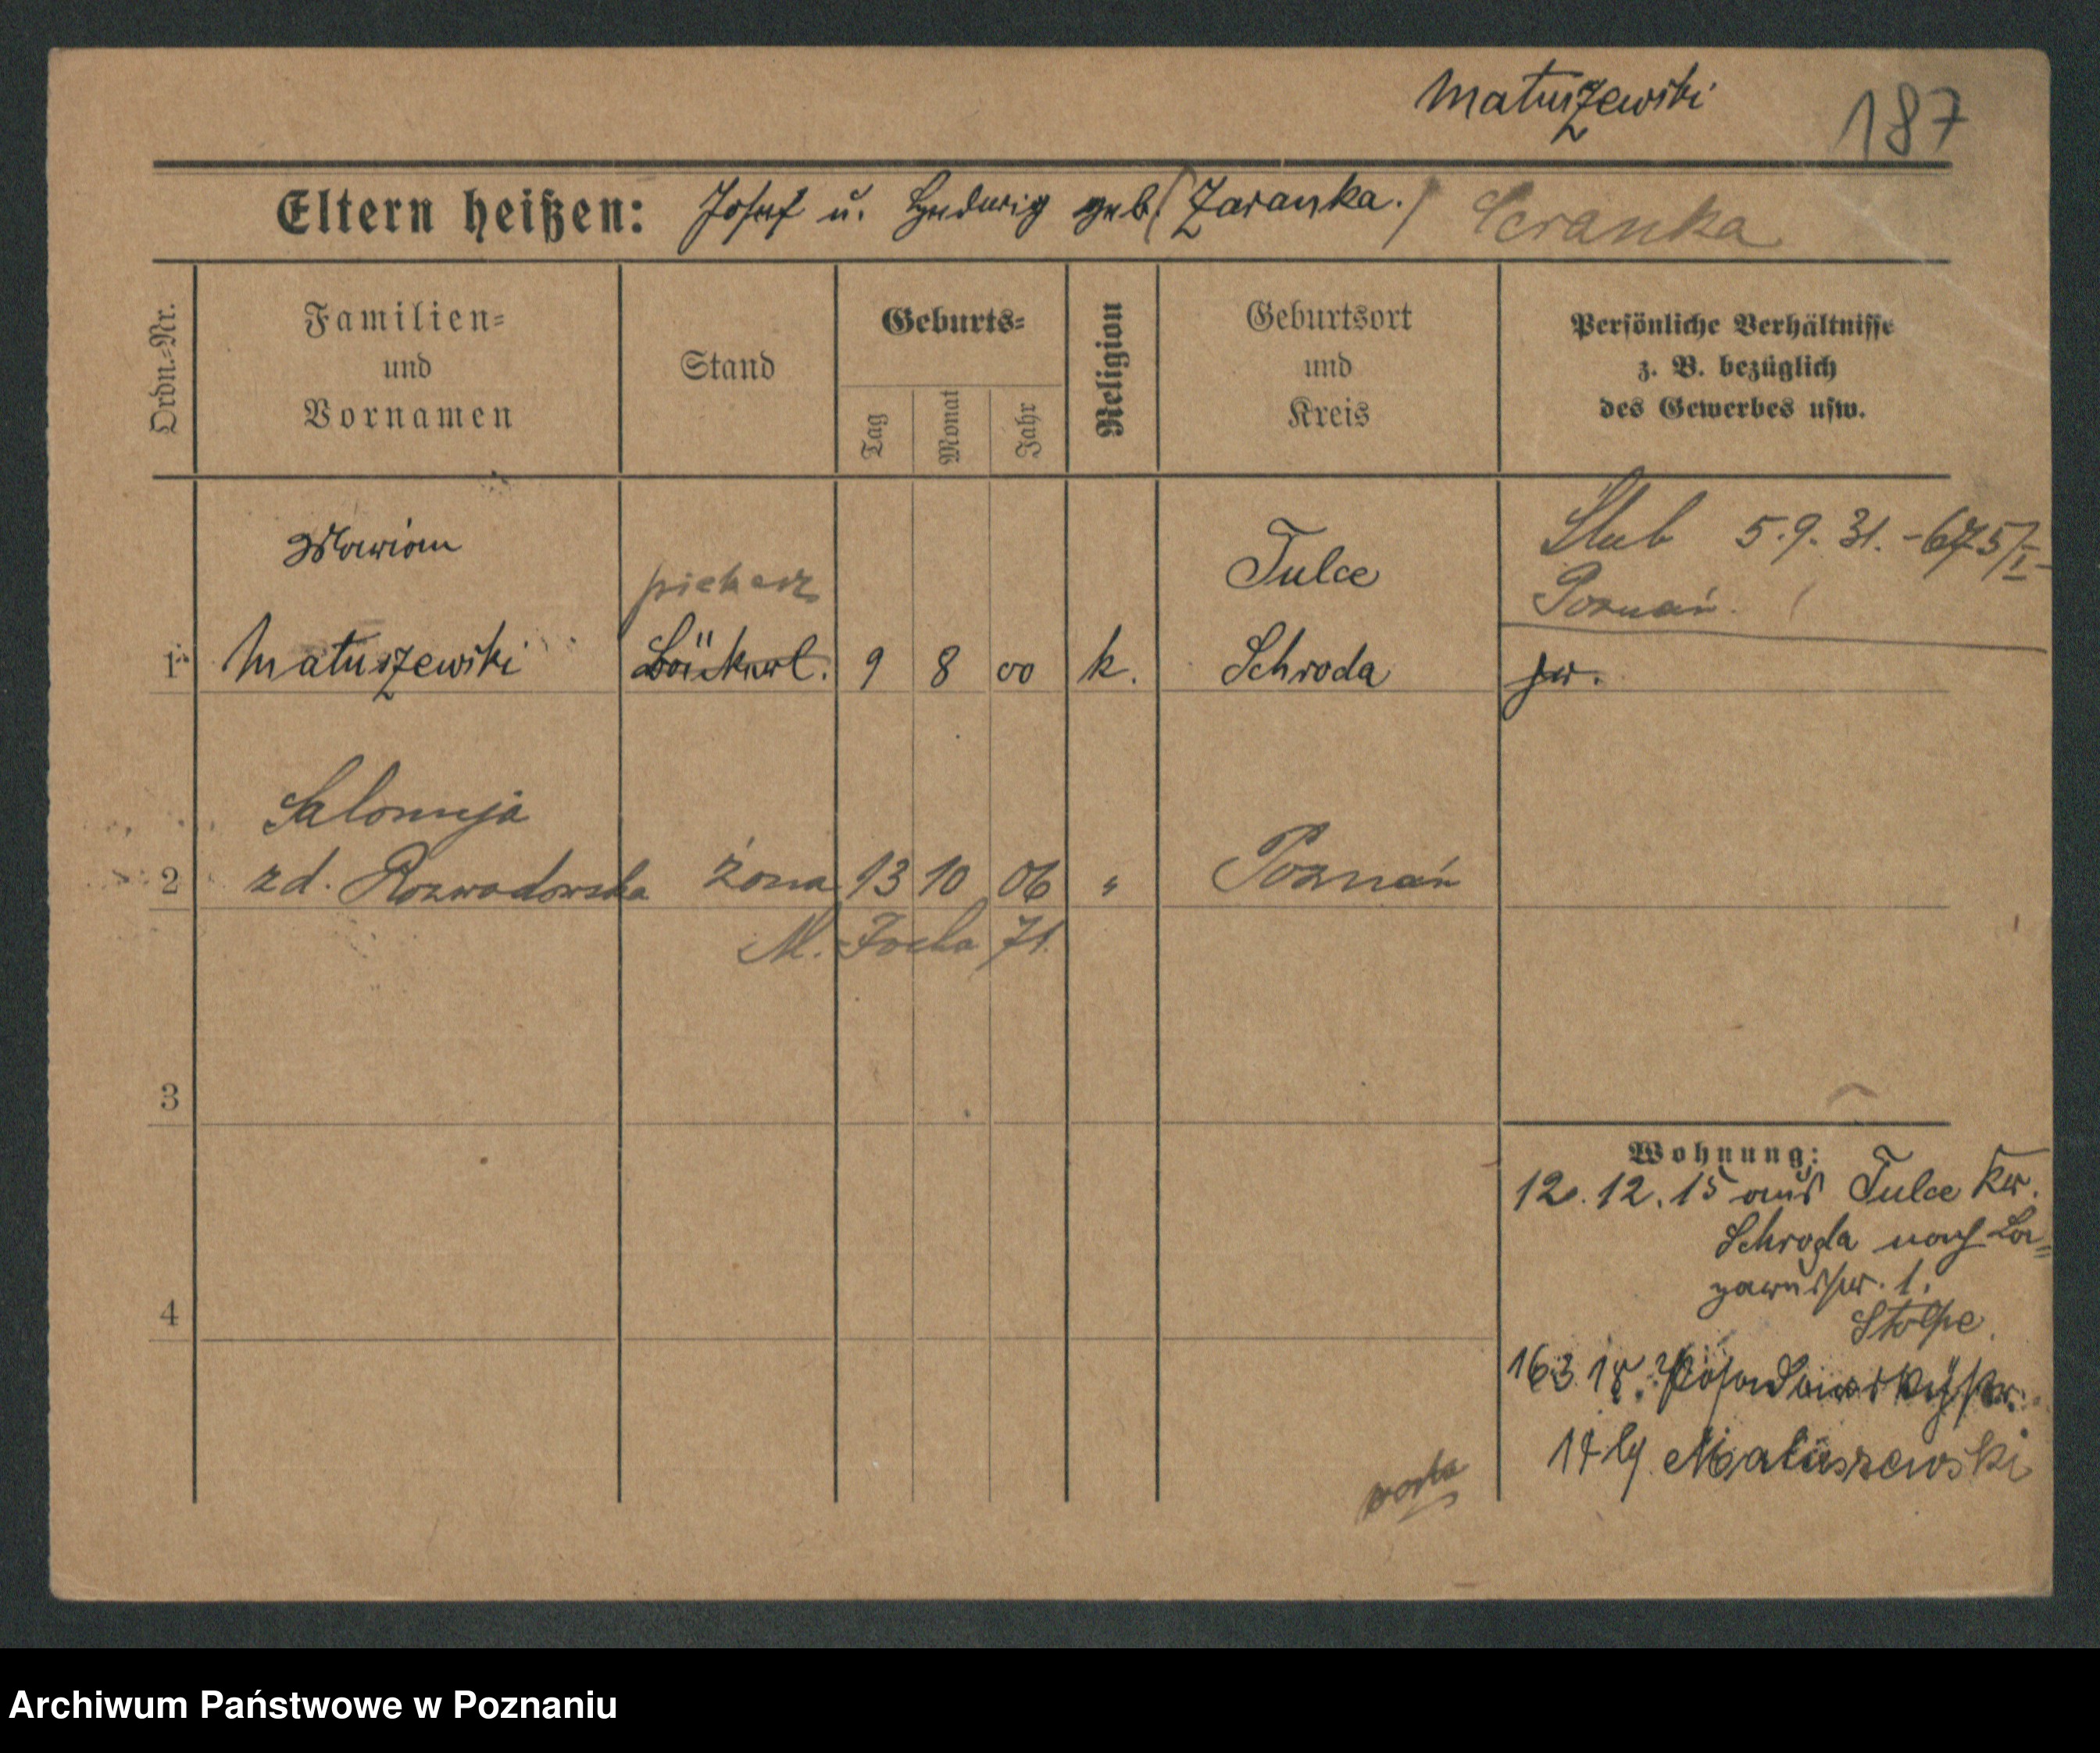 Matuszewski
187
Eltern heißen: Josef u. Hedwig geb. (Zaranka.) Scranka
Ordn.-Nr.
Familien-
und
Vornamen
Stand
Geburts-
Tag
Monat
Jahr
Religion
Geburtsort
und
Kreis
Persönliche Verhältnisse
z. B. bezüglich
des Gewerbes usw.
Marian
piekarz
Tulce
Ślub 5.9.31. - 675/I
Poznań.
1 Matuszewski Bäckerl. 9 8 00 k. Schroda
Salomeja
2 zd. Rozwadowska żona 13 10 06 " Poznań
M. Focha 71.
3
4
Wohnung:
12.12.15 aus Tulce Kr.
Schroda nach La=
zarusstr. 1.
Stolpe.
16.3.18. Posadowskystr.
17 Matuszewski
Archiwum Państwowe w Poznaniu